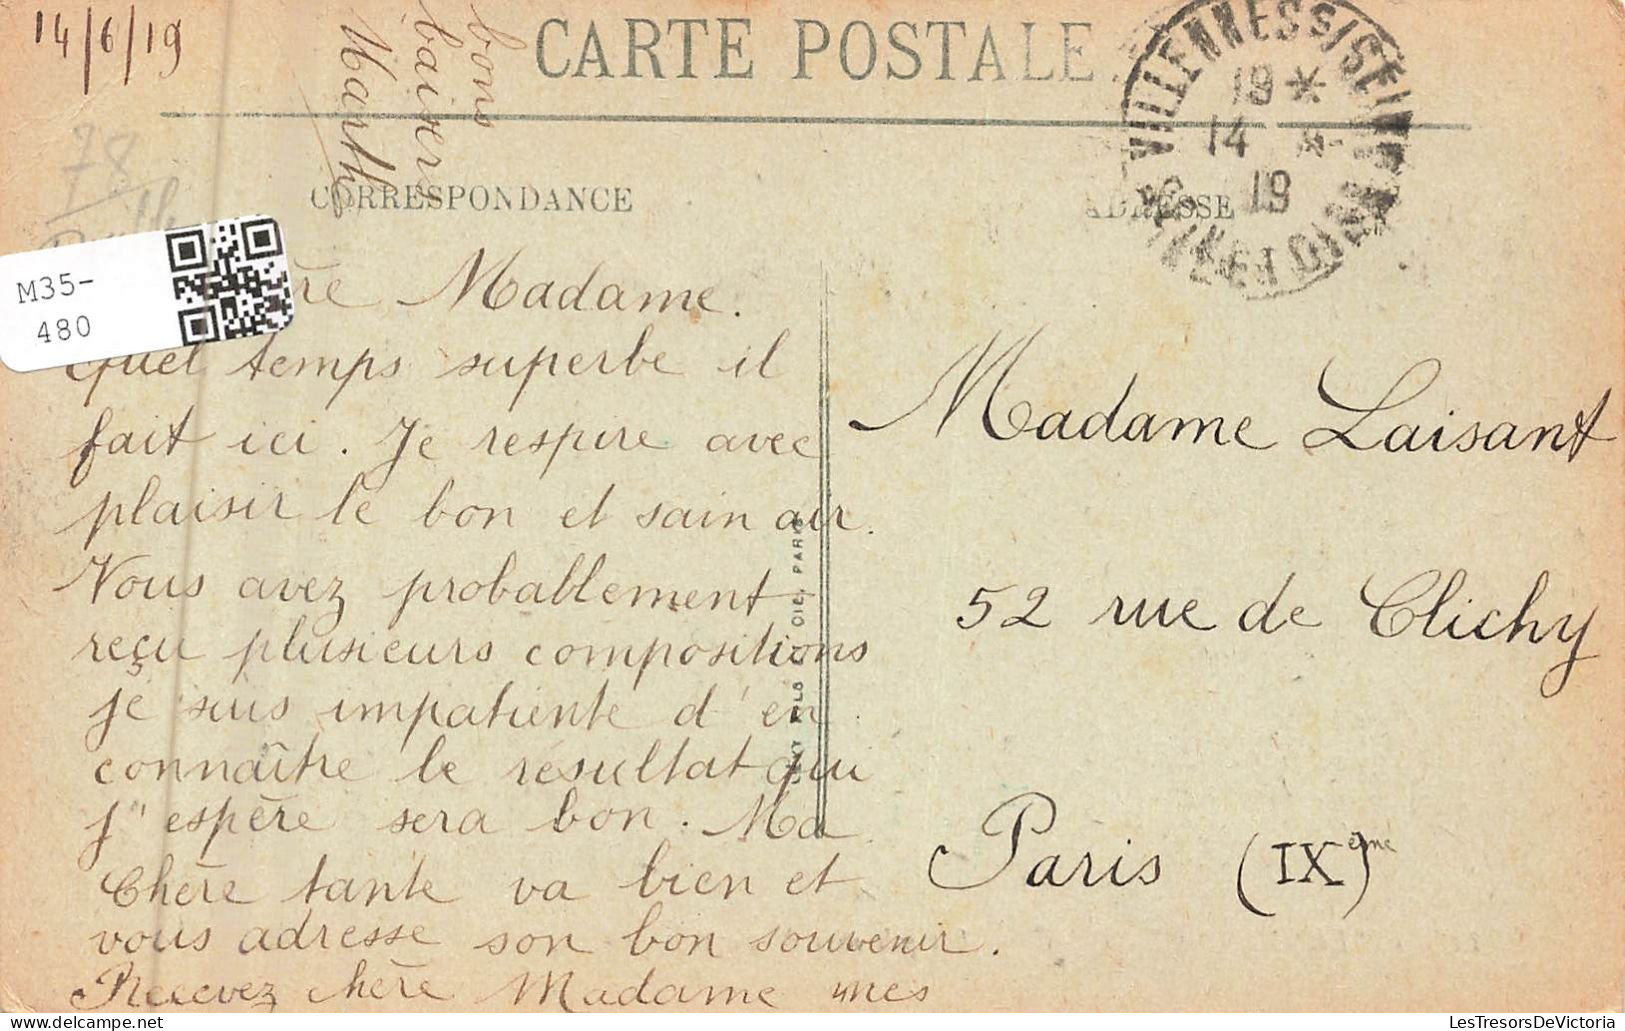 14/6/19
bons
baisers
Marthe
CARTE POSTALE
VILLENNES S/SEINE
19 *
14 - 6 -
19
SEINE ET OISE
CORRESPONDANCE
ADRESSE
78
M35-
480
ère Madame.
Quel temps superbe il
fait ici. Je respire avec
plaisir le bon et sain air.
Vous avez probablement
reçu plusieurs compositions
je suis impatiente d'en
connaître le résultat qui
j'espère sera bon. Ma
Chère tante va bien et
vous adresse son bon souvenir.
Recevez chère Madame mes
FILS & CIE, PARIS
Madame Laisant
52 rue de Clichy
Paris (IXème)
LesTresorsDeVictoria